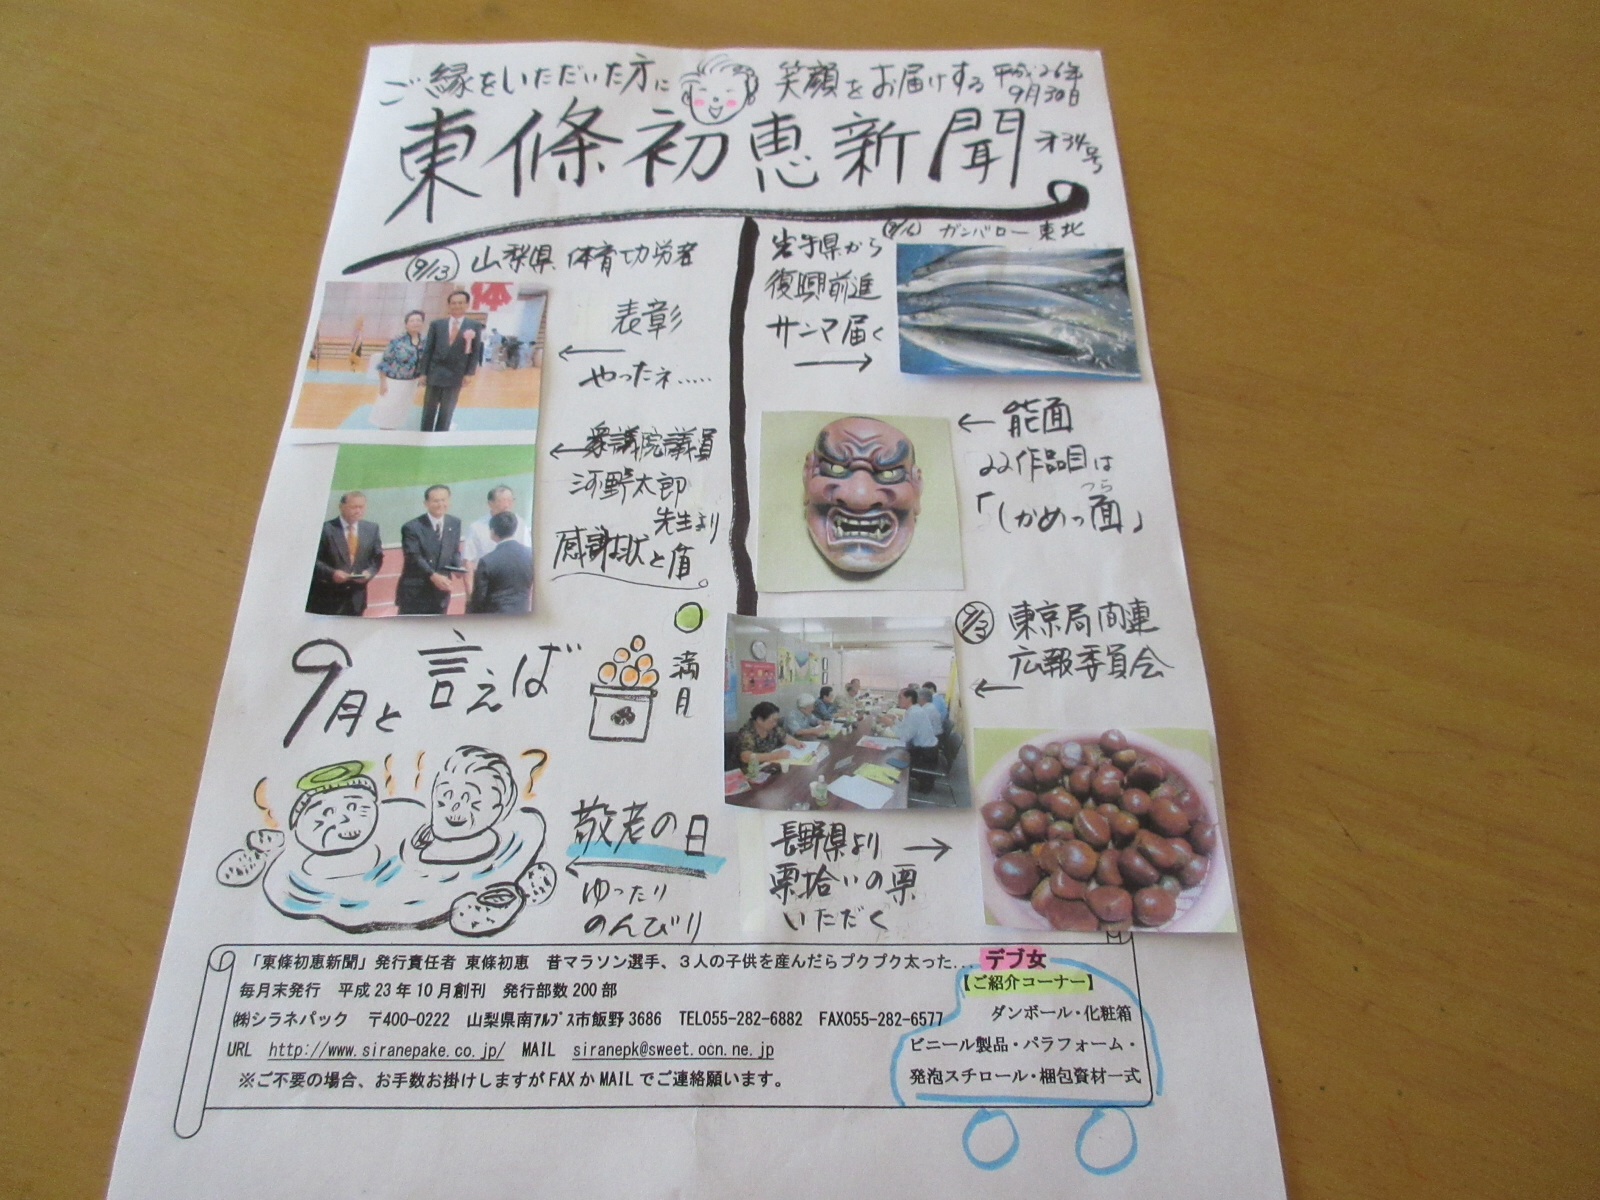 ご縁をいただいた方に 笑顔をお届けする 平成26年
9月30日
東條初恵新聞 才34号
9/13 山梨県 体育功労者
表彰
やったネ.....
体
衆議院議員
河野太郎
先生より
感謝状と盾
9月と言えば
満月
敬老の日
ゆったり
のんびり
ガンバロー東北
岩手県から
復興前進
サンマ届く
能面
22作品目は
つら
「しかめっ面」
東京局間連
広報委員会
長野県より
栗拾いの栗
いただく
「東條初恵新聞」発行責任者 東條初恵 昔マラソン選手、3人の子供を産んだらブクブク太った... デブ女
毎月末発行 平成23年10月創刊 発行部数200部
㈱シラネパック 〒400-0222 山梨県南ｱﾙﾌﾟｽ市飯野3686 TEL055-282-6882 FAX055-282-6577
URL http://www.siranepake.co.jp/ MAIL siranepk@sweet.ocn.ne.jp
※ご不要の場合、お手数お掛けしますがFAXかMAILでご連絡願います。
【ご紹介コーナー】
ダンボール・化粧箱
ビニール製品・パラフォーム・
発泡スチロール・梱包資材一式